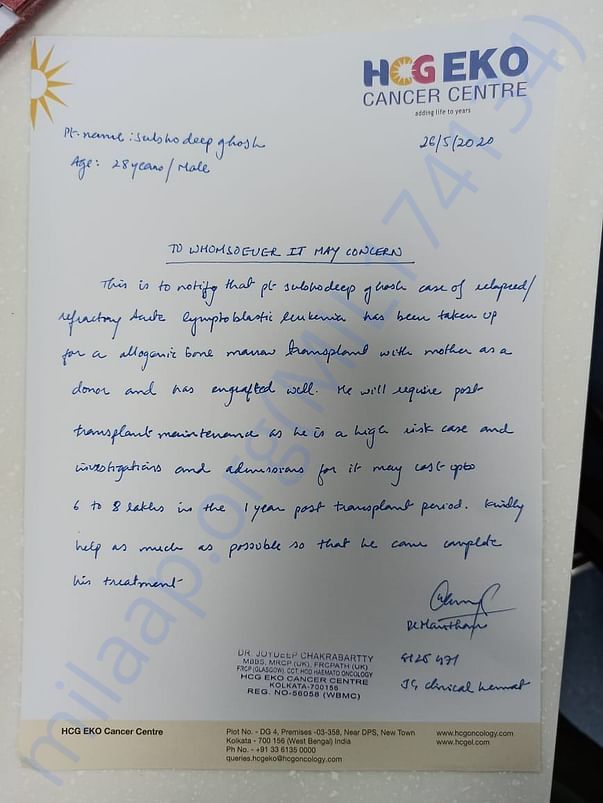 HCG EKO
CANCER CENTRE
adding life to years
26/5/2020
Pt. name : Subhodeep ghosh
Age: 28 years / Male
TO WHOMSOEVER IT MAY CONCERN
This is to notify that pt subhodeep ghosh case of relapsed/
refractory Acute lymphoblastic leukemia has been taken up
for a allogenic bone marrow transplant with mother as a
donor and has engrafted well. He will require post
transplant maintenance as he is a high risk case and
investigations and admissions for it may cost upto
6 to 8 lakhs in the 1 year post transplant period. Kindly
help as much as possible so that he came complete
his treatment
DR. JOYDEEP CHAKRABARTTY
MBBS, MRCP (UK), FRCPATH (UK)
FRCP (GLASGOW), CCT, HOD HAEMATO ONCOLOGY
HCG EKO CANCER CENTRE
KOLKATA-700156
REG. NO-56058 (WBMC)
HCG EKO Cancer Centre
Plot No. - DG 4, Premises -03-358, Near DPS, New Town
Kolkata - 700 156 (West Bengal) India
Ph No. - +91 33 6135 0000
queries.hcgeko@hcgoncology.com
www.hcgoncology.com
www.hcgel.com
milaap.org(MIL174134)